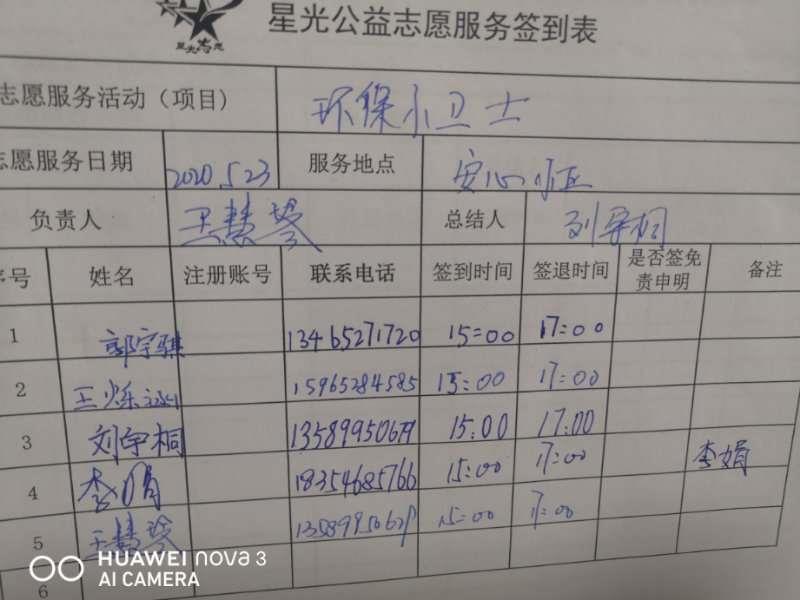 星光志愿
星光公益志愿服务签到表
志愿服务活动（项目） 环保小卫士
志愿服务日期 2020.5.23 服务地点 安心小区
负责人 王慧琴 总结人 刘宇桐
序号 姓名 注册账号 联系电话 签到时间 签退时间 是否签免责申明 备注
1 郭宇骐 13465271720 15:00 17:00
2 王烁 15965284585 15:00 17:00
3 刘宇桐 15:00 17:00
4 李娟 18354685766 15:00 17:00 李娟
5 王慧琴 15:00 17:00
6
HUAWEI nova 3
AI CAMERA